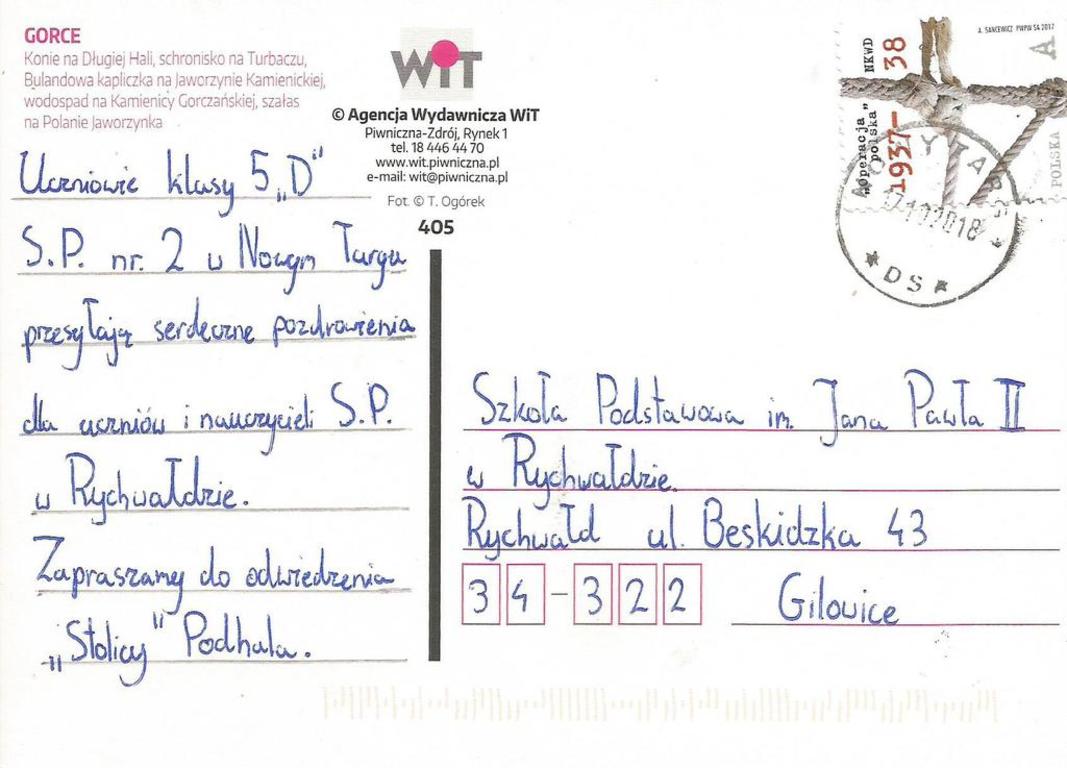 GORCE
Konie na Długiej Hali, schronisko na Turbaczu,
Bulandowa kapliczka na Jaworzynie Kamienickiej,
wodospad na Kamienicy Gorczańskiej, szałas
na Polanie Jaworzynka
WiT
© Agencja Wydawnicza WiT
Piwniczna-Zdrój, Rynek 1
tel. 18 446 44 70
www.wit.piwniczna.pl
e-mail: wit@piwniczna.pl
Fot. © T. Ogórek
405
Uczniowie klasy 5 „D"
S.P. nr. 2 w Nowym Targu
przesyłają serdeczne pozdrowienia
dla uczniów i nauczycieli S.P.
w Rychwałdzie.
Zapraszamy do odwiedzenia
„Stolicy" Podhala.
A. SANCEWICZ PWPW SA 2017
A
POLSKA
„Operacja polska"
NKWD
1937–38
17102018
* DS *
Szkoła Podstawowa im. Jana Pawła II
w Rychwałdzie.
Rychwałd ul. Beskidzka 43
34-322 Gilowice